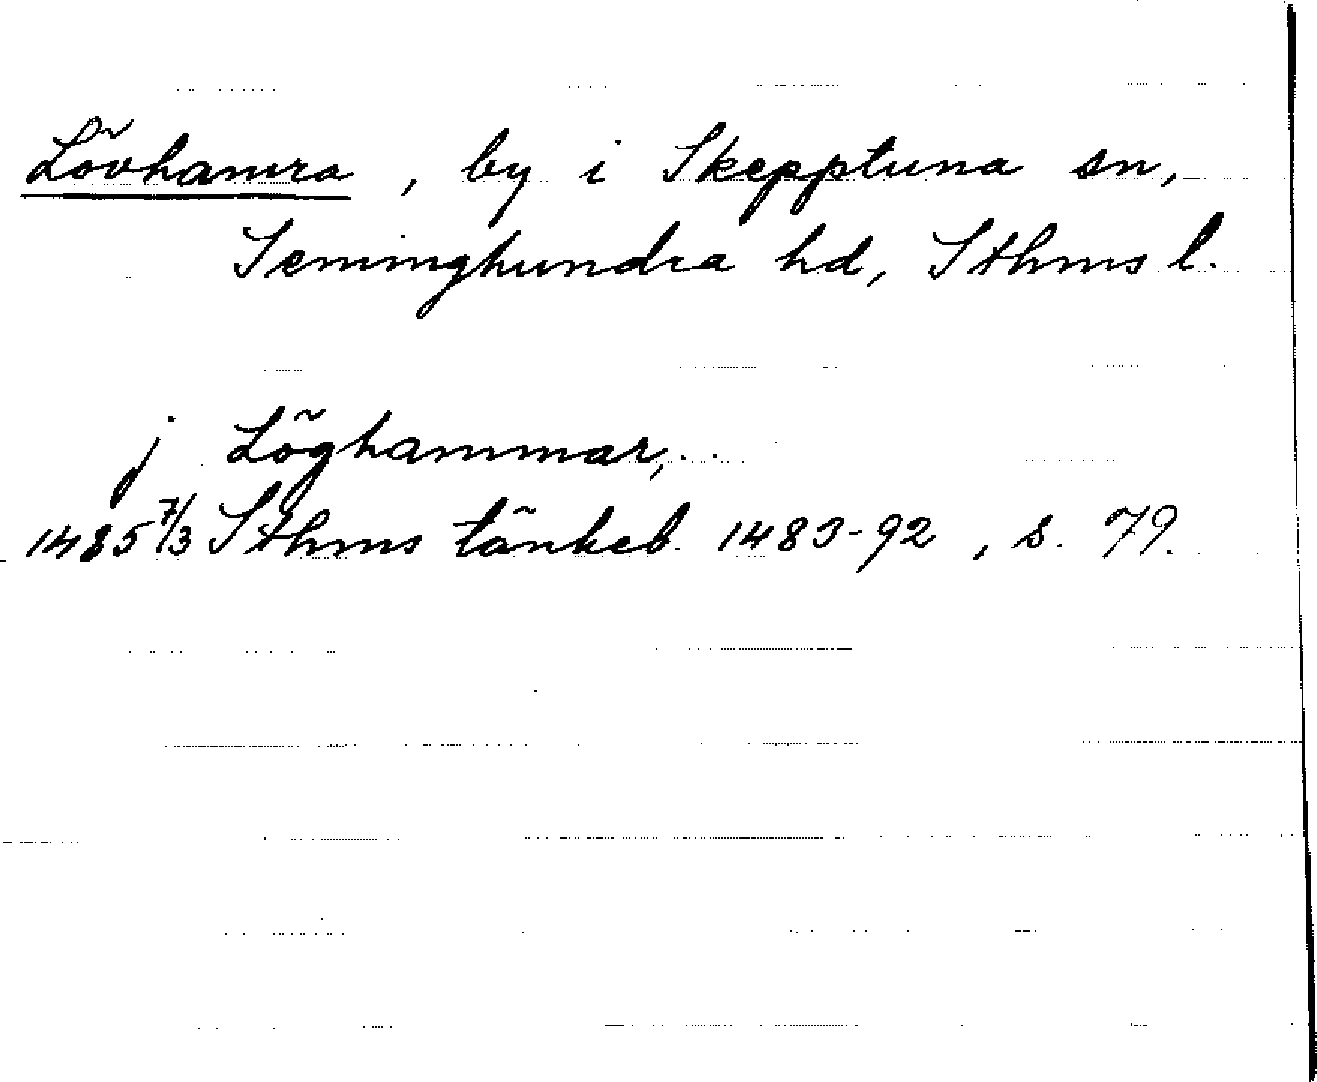 Lövhamra, by i Skepptuna sn,
Seminghundra hd, Sthms l.
j Löghammar, . .
1485 7/3 Sthms tänkeb. 1483-92, s. 79.